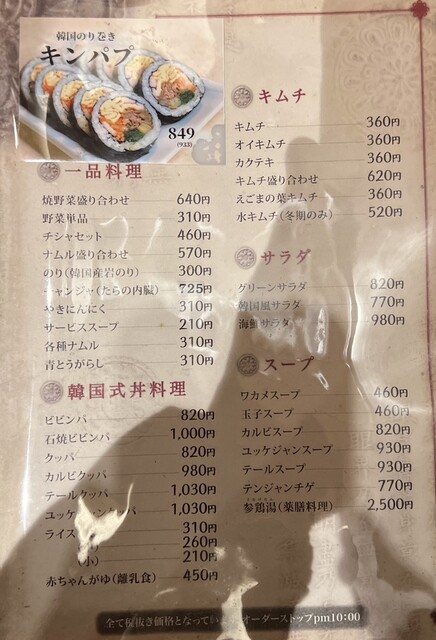 韓国のり巻き
キンパプ
849
(933)
一品料理
焼野菜盛り合わせ 640円
野菜単品 310円
チシャセット 460円
ナムル盛り合わせ 570円
のり(韓国産岩のり) 300円
チャンジャ(たらの内臓) 725円
やきにんにく 310円
サービススープ 210円
各種ナムル 310円
青とうがらし 310円
韓国式丼料理
ビビンバ 820円
石焼ビビンバ 1,000円
クッパ 820円
カルビクッパ 980円
テールクッパ 1,030円
ユッケジャンクッパ 1,030円
ライス 310円
260円
(小) 210円
赤ちゃんがゆ(離乳食) 450円
キムチ
キムチ 360円
オイキムチ 360円
カクテキ 360円
キムチ盛り合わせ 620円
えごまの葉キムチ 360円
水キムチ(冬期のみ) 520円
サラダ
グリーンサラダ 820円
韓国風サラダ 770円
海鮮サラダ 980円
スープ
ワカメスープ 460円
玉子スープ 460円
カルビスープ 820円
ユッケジャンスープ 930円
テールスープ 930円
テンジャンチゲ 770円
参鶏湯(薬膳料理) 2,500円
全て税抜き価格となって オーダーストップpm10:00